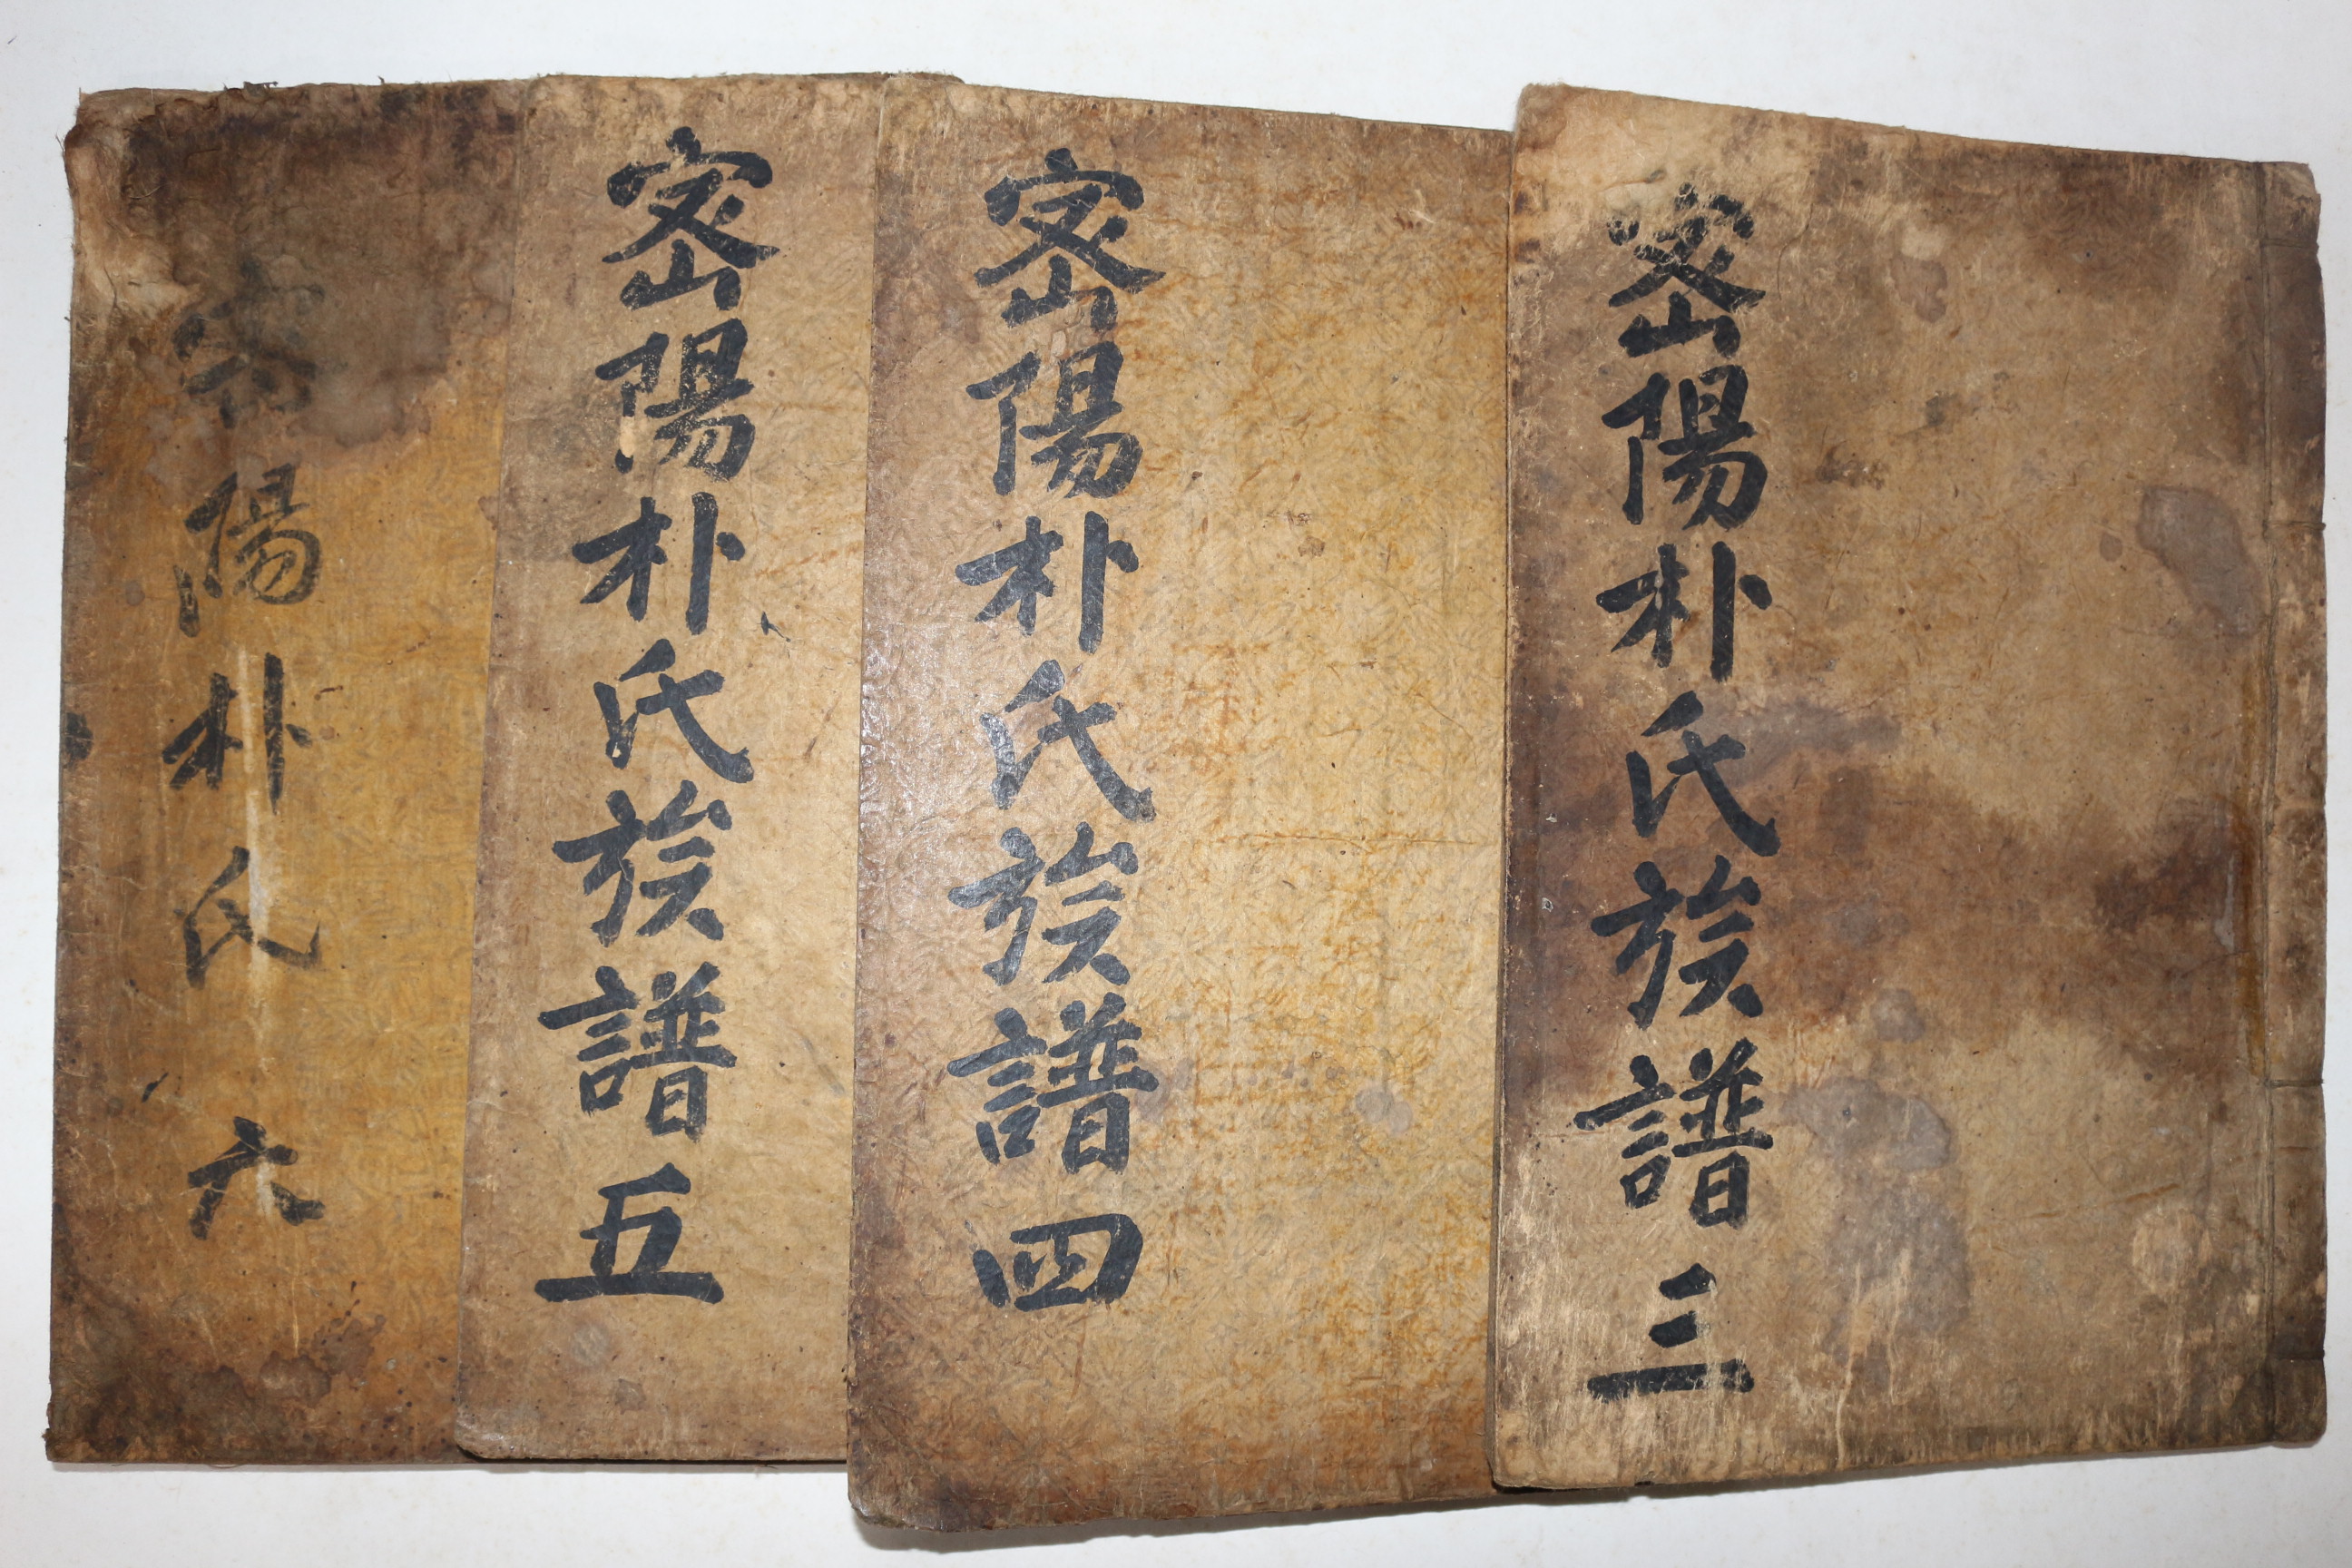 密陽朴氏族譜三
密陽朴氏族譜四
密陽朴氏族譜五
密陽朴氏 六